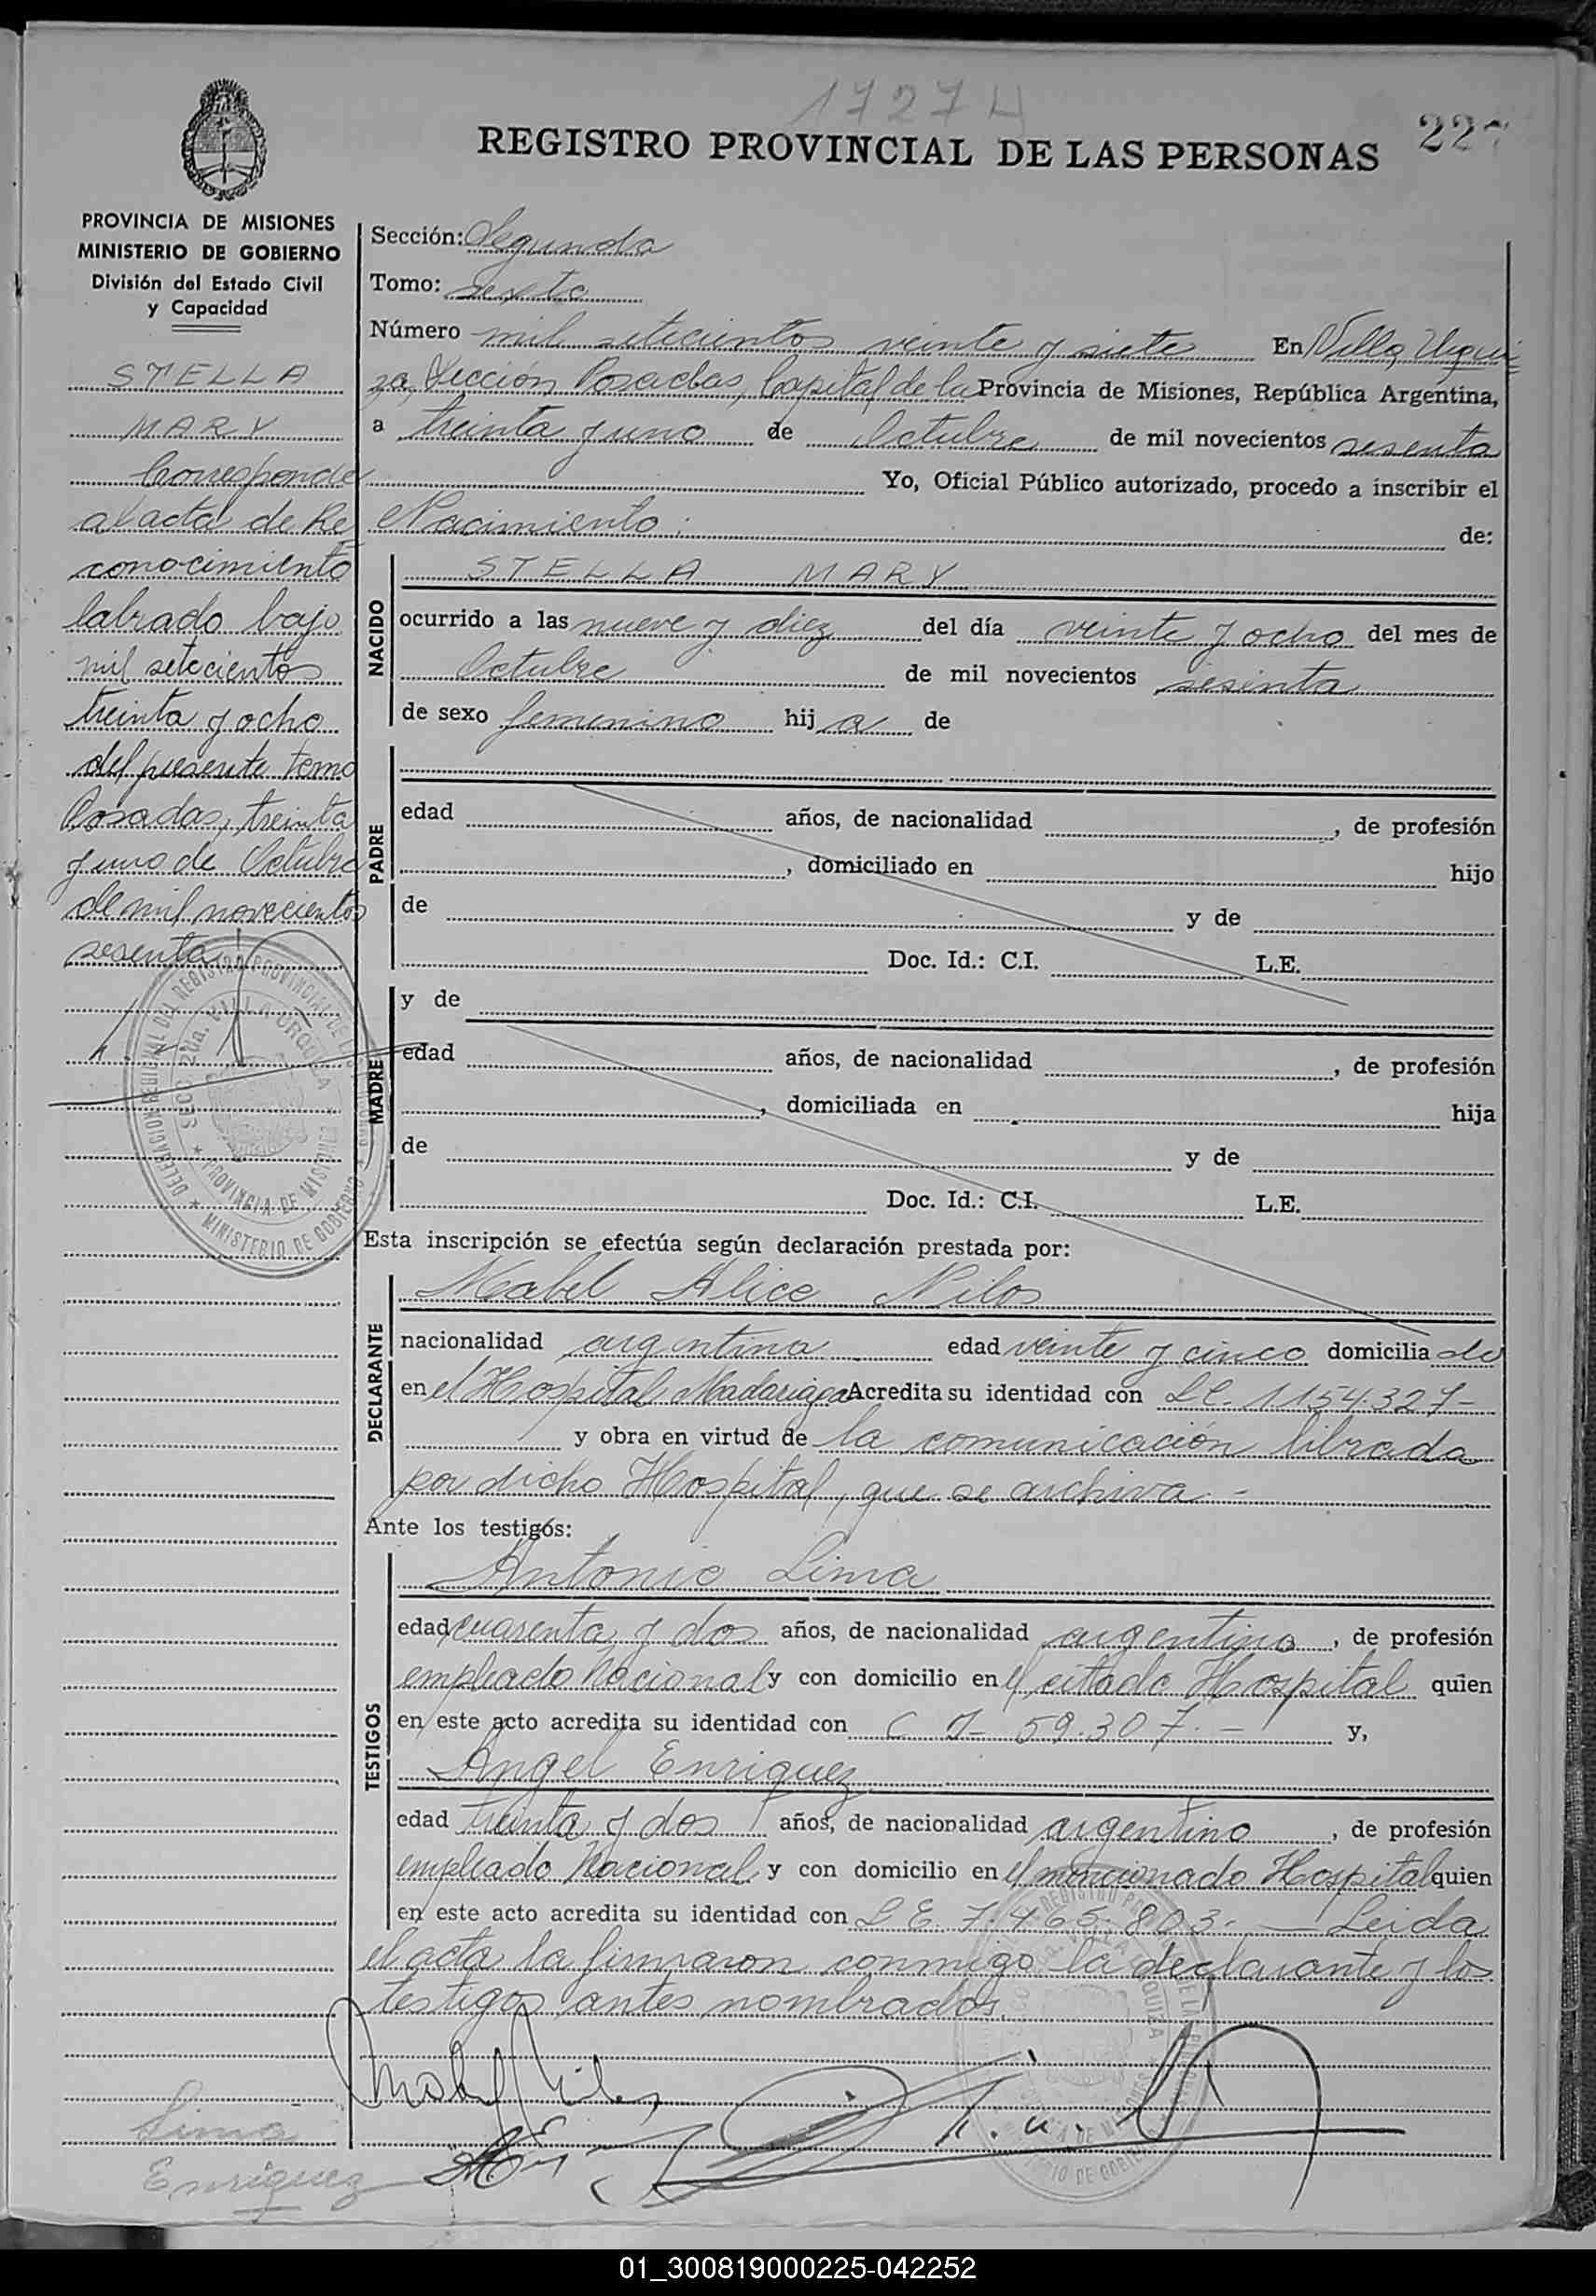 1727
REGISTRO PROVINCIAL DE LAS PERSONAS
PROVINCIA DE MISIONES
MINISTERIO DE GOBIERNO
División del Estado Civil
y Capacidad
STELLA
MARY
Corresponde
al acta de Re
conocimiento
labrado bajo
mil setecientos
treinta y ocho
del presente tomo
Posadas, treinta
y uno de Octubre
de mil novecientos
sesenta
DELEGACION REGIONAL DEL REGISTRO PROVINCIAL DE LAS PERSONAS
SECC. 2da. VILLA URQUIZA
PROVINCIA DE MISIONES
MINISTERIO DE GOBIERNO
Sección: Segunda
Tomo: sexto
Número mil setecientos veinte y siete En Villa Urqui
za, Sección Posadas, Capital de la Provincia de Misiones, República Argentina,
a treinta y uno de Octubre de mil novecientos sesenta
Yo, Oficial Público autorizado, procedo a inscribir el
Nacimiento: de:
NACIDO
STELLA MARY
ocurrido a las nueve y diez del día veinte y ocho del mes de
Octubre de mil novecientos sesenta
de sexo femenino hija de
PADRE
edad años, de nacionalidad , de profesión
, domiciliado en hijo
de y de
Doc. Id.: C.I. L.E.
MADRE
y de
edad años, de nacionalidad , de profesión
, domiciliada en hija
de y de
Doc. Id.: C.I. L.E.
Esta inscripción se efectúa según declaración prestada por:
DECLARANTE
Mabel Alice Nilos
nacionalidad argentina edad veinte y cinco domiciliada
en el Hospital Madariaga Acredita su identidad con LC. 1154.327-
y obra en virtud de la comunicación librada
por dicho Hospital, que se archiva.-
Ante los testigos:
TESTIGOS
Antonio Lima
edad cuarenta y dos años, de nacionalidad argentino, de profesión
empleado Nacional y con domicilio en el citado Hospital quien
en este acto acredita su identidad con C I- 59.307.- y,
Angel Enriquez
edad treinta y dos años, de nacionalidad argentino, de profesión
empleado Nacional y con domicilio en el mencionado Hospital quien
en este acto acredita su identidad con L E. 7.465.803.- Leida
el acta la firmaron conmigo la declarante y los
testigos antes nombrados.
Lima
Enriquez
01_300819000225-042252